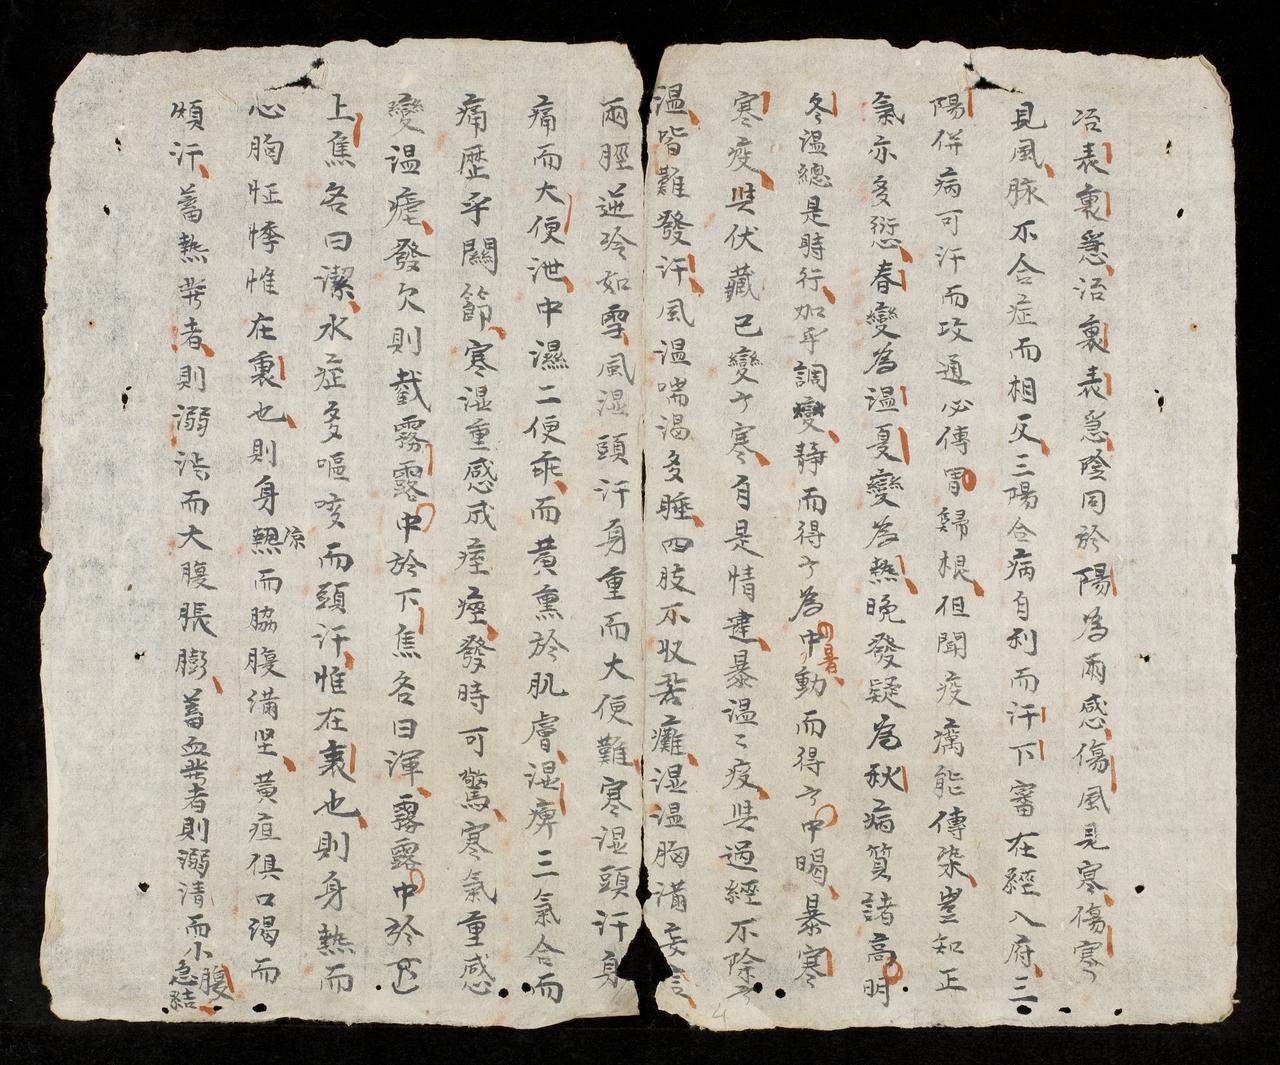 治表裏急治裏表急陰同於陽為兩感傷風見寒傷寒
見風脉不合症而相反三陽合病自利而汗下審在經入府三
陽併病可汗而攻通必傳胃歸根但聞疫癘能傳染豈知正
氣亦多愆春變為溫夏變為熱晚發疑為秋病質諸高明
冬溫總是時行加乎調變静而得了為中暑動而得了中暍暴寒
寒疫與伏藏已變了寒自是情違暴溫〻疫與過經不除了
溫皆難發汗風溫喘渴多睡四肢不收若癱濕溫胸滿妄言
兩脛逆冷如雪風湿頭汗身重而大便難寒湿頭汗身
痛而大便泄中濕二便乖而黄熏於肌膚湿痺三氣合而
痛歷乎關節寒湿重感成痓痓發時可驚寒氣重感
變温瘧發久則截霧露中於下焦名曰渾霧露中於
上焦名曰潔水症多嘔㕮而頭汗惟在裏也則身熱而
心胸怔悸惟在裏也則身凉而脇腹滿坚黄疸俱口渴而
頞汗蓄熱者則溺澁而大腹脹膨蓄血者則溺清而小腹急結